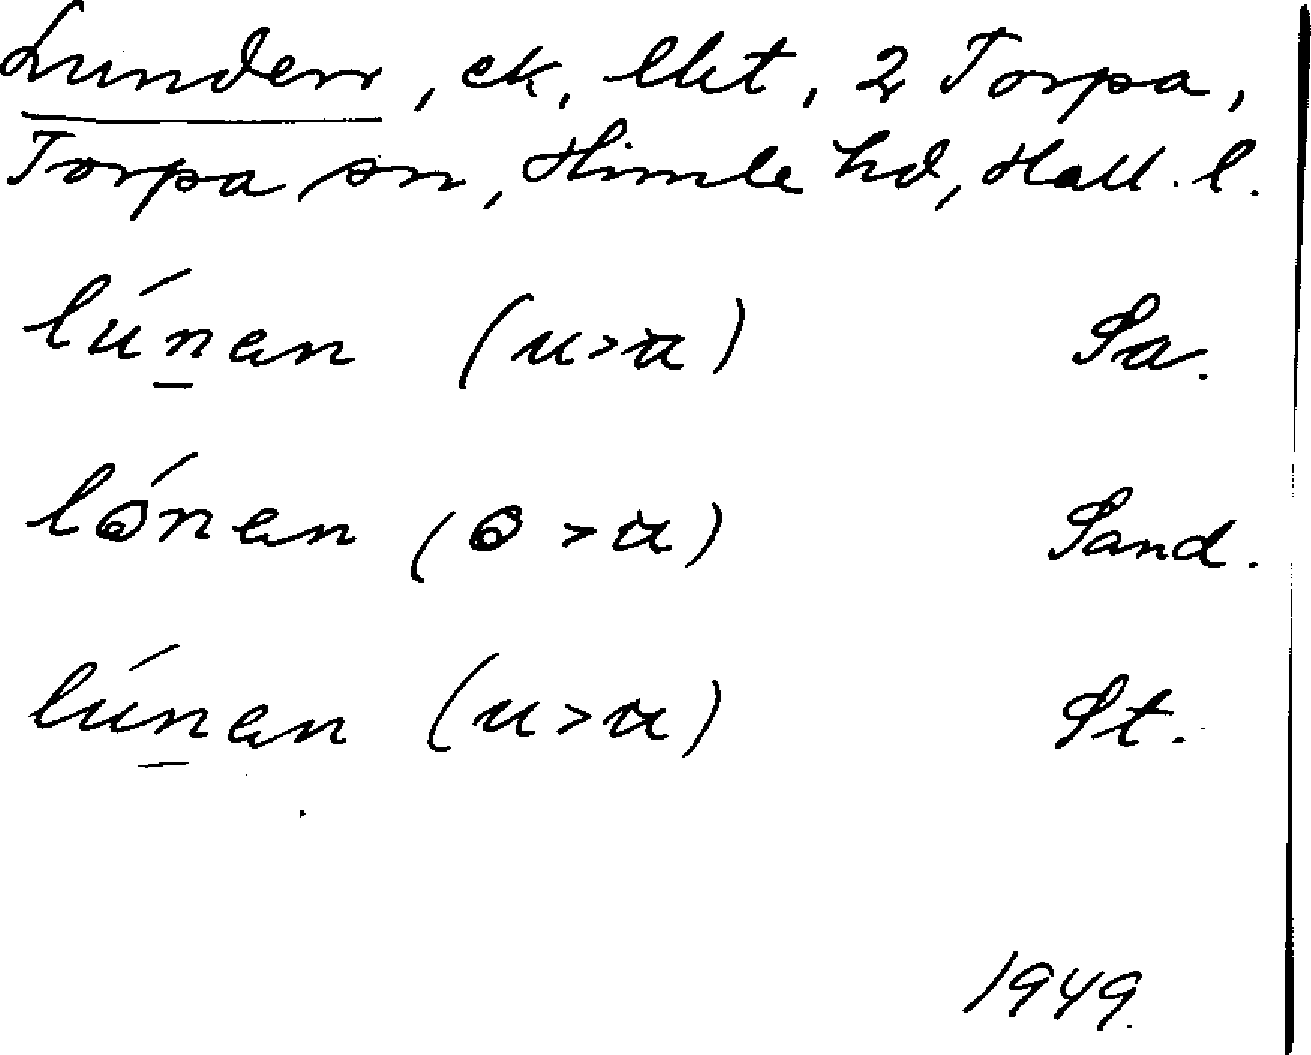 Lunden, ek. lht, 2 Torpa,
Torpa sn, Himle hd, Hall. l.
lúnan (u>a) Sa.
lónan (o>a) Sand.
lúnan (u>a) St.
1949.